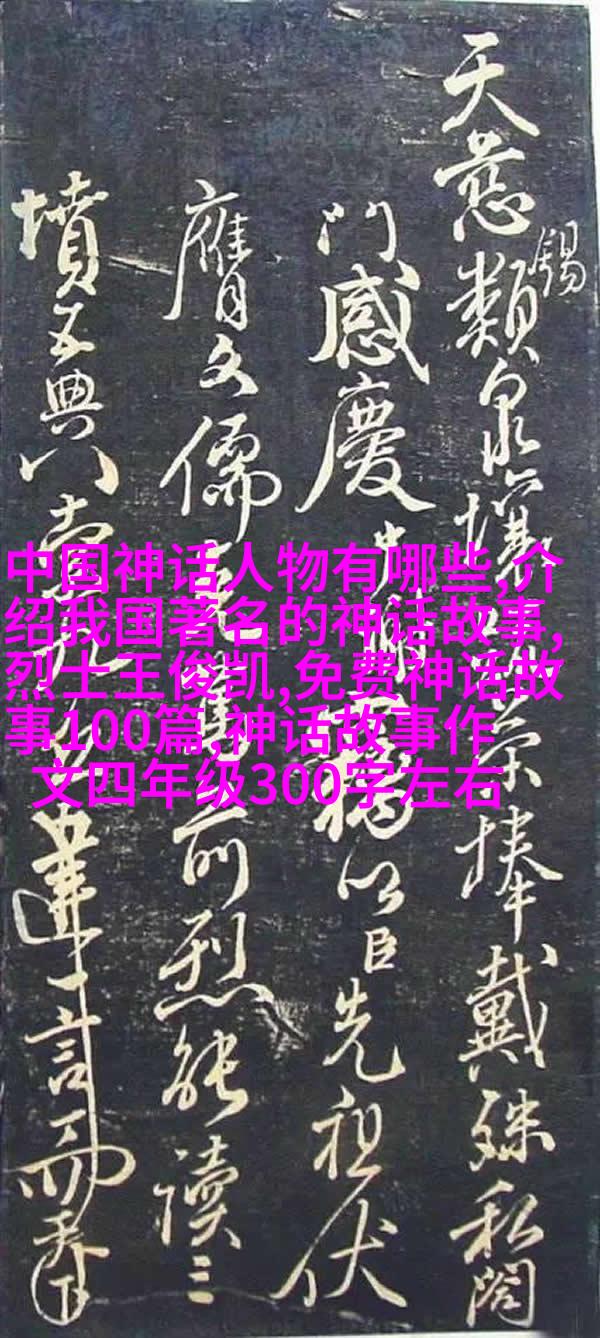 中国神话人物有哪些,介
绍我国著名的神话故事,
烈士王俊凯,免费神话故
事100篇,神话故事作
文四年级300字左右
天慈錫類泉壤榮捧戴殊私闔
門感慶中以臣先祖伏
膺文儒前烈能讀三
墳五典八索九言